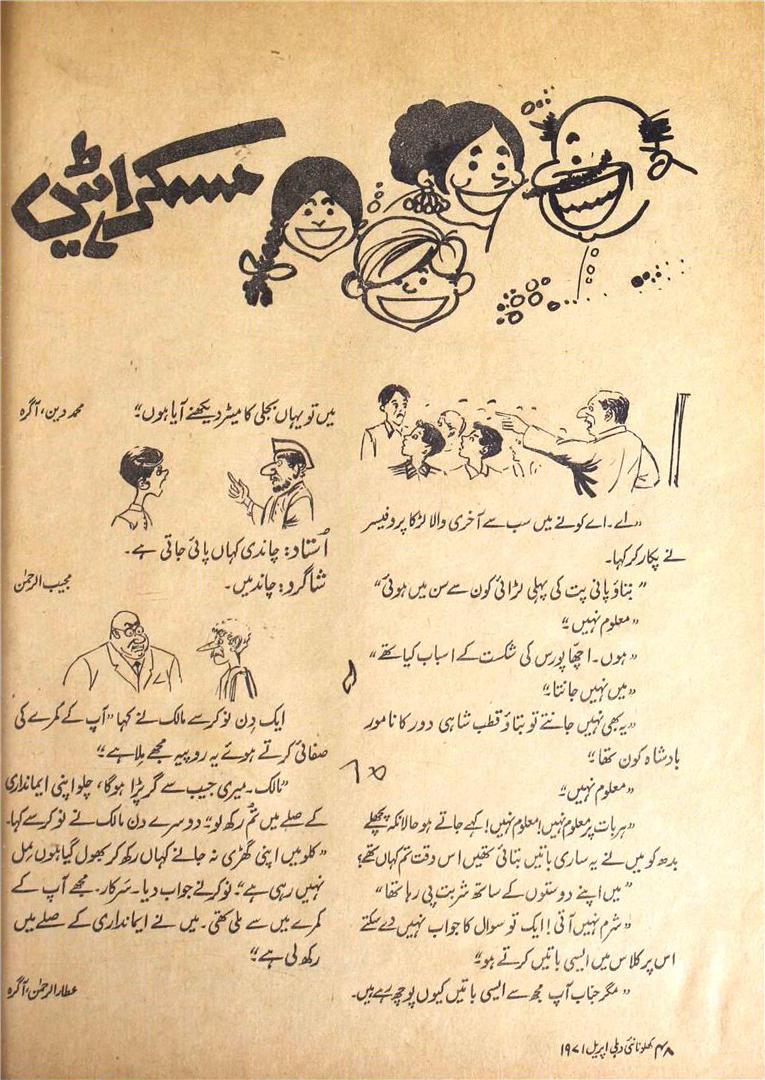 مسکراہٹیں
"اے۔ اے کونے میں سب سے آخری والا لڑکا پروفیسر
نے پکار کر کہا۔
"بتاؤ پانی پت کی پہلی لڑائی کون سے سن میں ہوئی"
"معلوم نہیں"
"ہوں۔ اچھا پورس کی شکست کے اسباب کیا تھے"
"میں نہیں جانتا"
"یہ بھی نہیں جانتے تو بتاؤ قطب شاہی دور کا نامور
بادشاہ کون تھا"
"معلوم نہیں"
"ہر بات پر معلوم نہیں! معلوم نہیں! کہے جاتے ہو حالانکہ پچھلے
بدھ کو میں نے یہ ساری باتیں بتائی تھیں اس وقت تم کہاں تھے؟
"میں اپنے دوستوں کے ساتھ شربت پی رہا تھا"
"شرم نہیں آتی! ایک تو سوال کا جواب نہیں دے سکتے
اس پر کلاس میں ایسی باتیں کرتے ہو"
"مگر جناب آپ مجھ سے ایسی باتیں کیوں پوچھ رہے ہیں۔
میں تو یہاں بجلی کا میٹر دیکھنے آیا ہوں" محمد دین، آگرہ
اُستاد: چاندی کہاں پائی جاتی ہے۔
شاگرد: چاند میں۔ مجیب الرحمٰن
ایک دن نوکر سے مالک نے کہا "آپ کے کمرے کی
صفائی کرتے ہوئے یہ روپیہ مجھے ملا ہے"
"مالک۔ میری جیب سے گر پڑا ہوگا، چلو اپنی ایمانداری
کے صلے میں تم رکھ لو" دوسرے دن مالک نے نوکر سے کہا۔
"کلو میں اپنی گھڑی نہ جانے کہاں رکھ کر بھول گیا ہوں مل
نہیں رہی ہے"۔ نوکر نے جواب دیا۔ سرکار۔ مجھے آپ کے
کمرے میں سے ملی تھی۔ میں نے ایمانداری کے صلے میں
رکھ لی ہے"
عطار الرحمٰن، آگرہ
۴۸ کھلونا نئی دہلی اپریل ۱۹۷۱